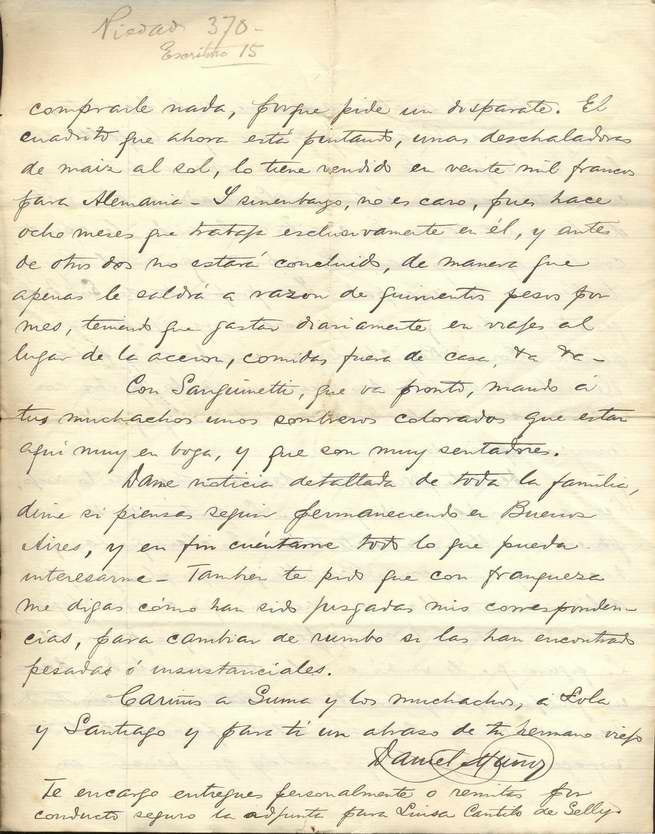 Piedad 370-
Escritorio 15
comprarle nada, porque pide un disparate. El
cuadrito que ahora está pintando, unas deschaladoras
de maiz al sol, lo tiene vendido en veinte mil francos
para Alemania - Y sinembargo, no es caro, pues hace
ocho meses que trabaja esclusivamente en él, y antes
de otros dos no estará concluido, de manera que
apenas le saldrá a razon de quinientos pesos por
mes, teniendo que gastar diariamente en viajes al
lugar de la accion, comidas fuera de casa, &a &a -
Con Sanguinetti, que va pronto, mando á
tus muchachos unos sombreros colorados que estan
aquí muy en boga, y que son muy sentadores.
Dame noticia detallada de toda la familia,
dime si piensas seguir permaneciendo en Buenos
Aires, y en fin cuéntame todo lo que pueda
interesarme - Tambien te pido que con franqueza
me digas cómo han sido juzgadas mis corresponden-
cias, para cambiar de rumbo si las han encontrado
pesadas ó insustanciales.
Cariños a Suma y los muchachos, á Lola
y Santiago y para tí un abraso de tu hermano viejo
Daniel Muñoz
Te encargo entregues personalmente o remitas por
conducto seguro la adjunta para Luisa Cantilo de Selly